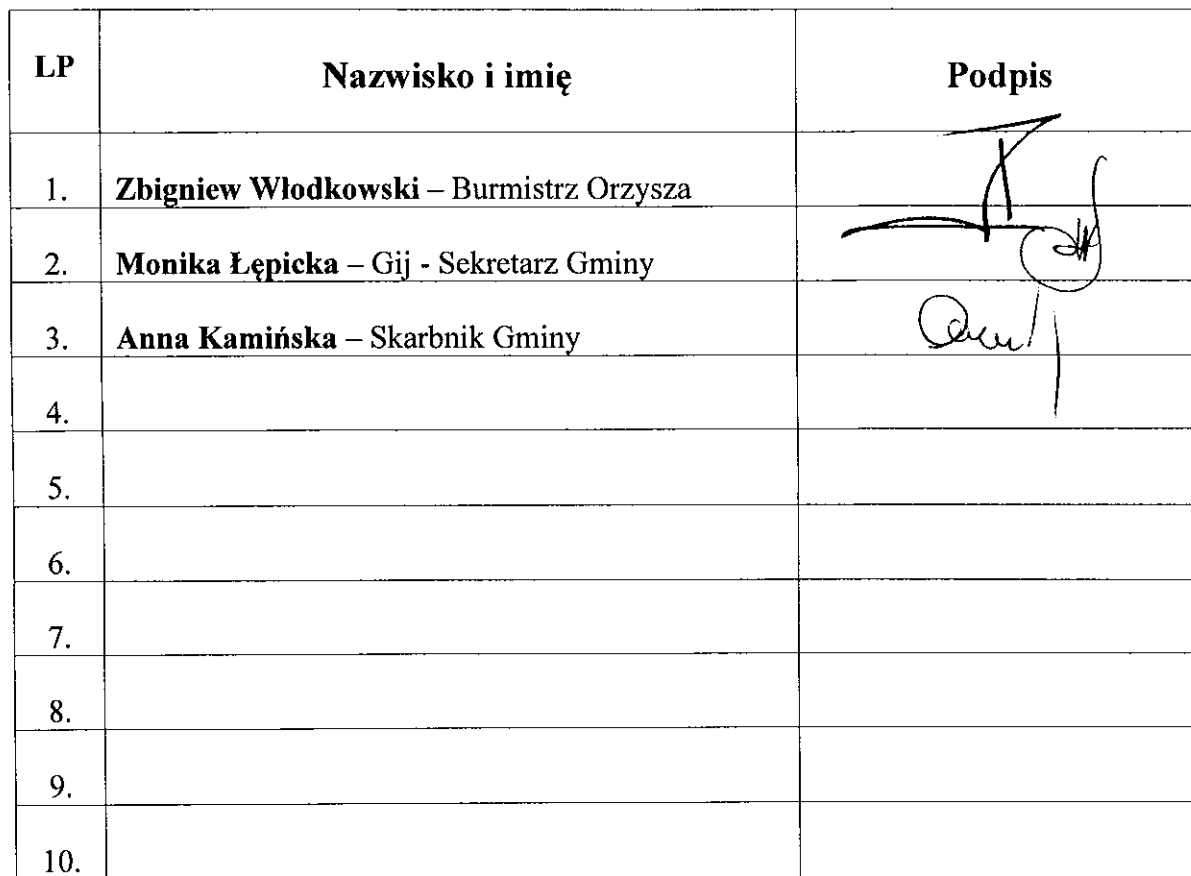 LP Nazwisko i imię Podpis
1. Zbigniew Włodkowski – Burmistrz Orzysza
2. Monika Łępicka – Gij - Sekretarz Gminy
3. Anna Kamińska – Skarbnik Gminy
4.
5.
6.
7.
8.
9.
10.